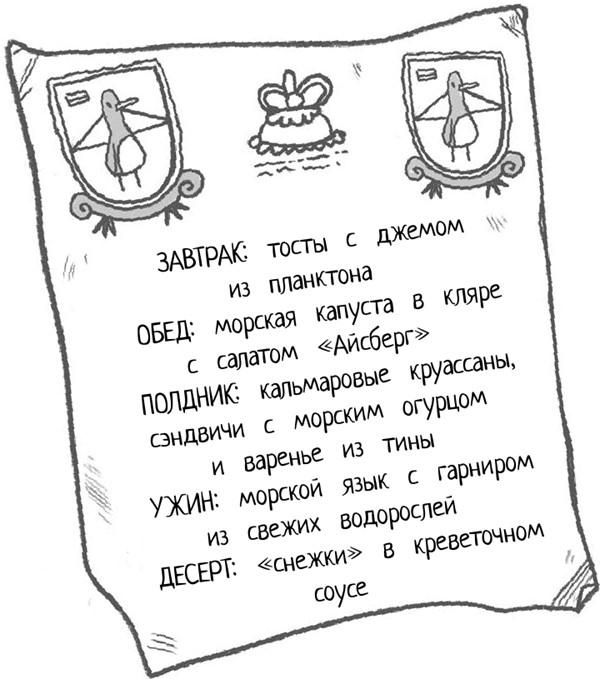 ЗАВТРАК: тосты с джемом
из планктона
ОБЕД: морская капуста в кляре
с салатом «Айсберг»
ПОЛДНИК: кальмаровые круассаны,
сэндвичи с морским огурцом
и варенье из тины
УЖИН: морской язык с гарниром
из свежих водорослей
ДЕСЕРТ: «снежки» в креветочном
соусе